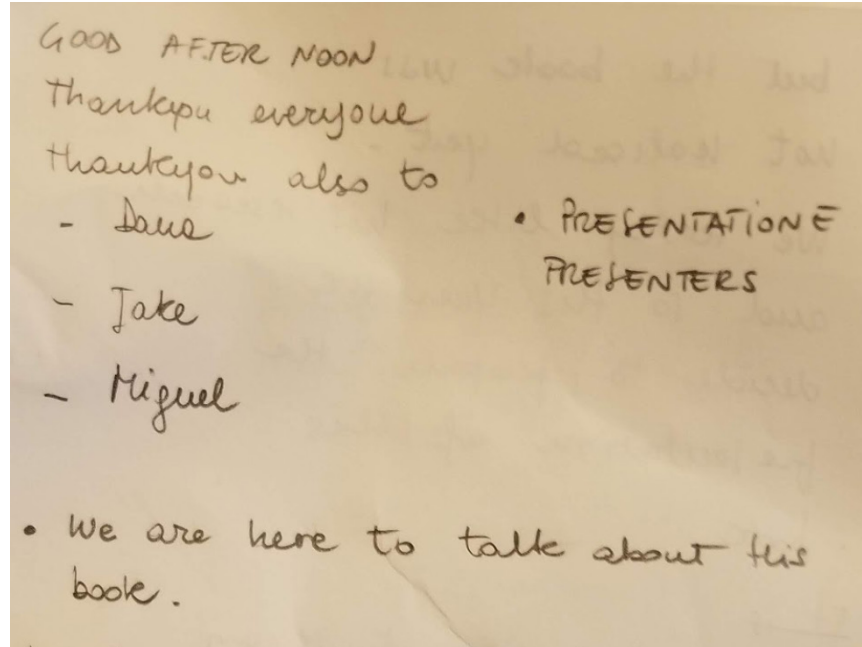 GOOD AFTER NOON
Thankyou everyone
thankyou also to
- Dana
- Jake
- Miguel
• PRESENTATION E
PRESENTERS
• We are here to talk about this
book.